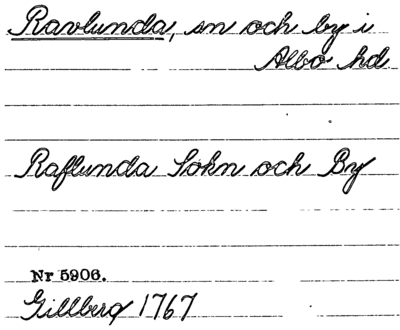 Ravlunda, sn och by i
Albo hd
Raflunda Sokn och By
Nr 5906.
Gillberg 1767